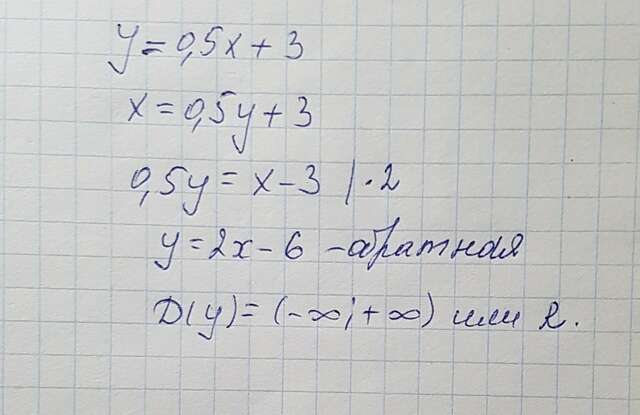 y = 0,5x + 3
x = 0,5y + 3
0,5y = x - 3 | · 2
y = 2x - 6 - обратная
D(y) = (-∞; +∞) или R.